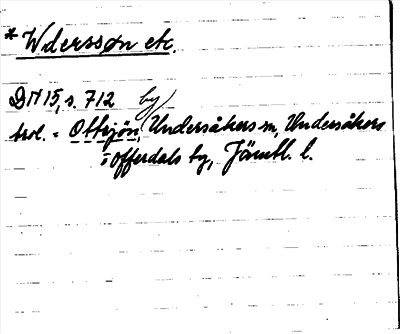 * Wderssøn etc.
DN 15, s. 712
trol. = Ottsjön, by, Undersåkers sn, Undersåkers
= Offerdals tg, Jämtl. l.